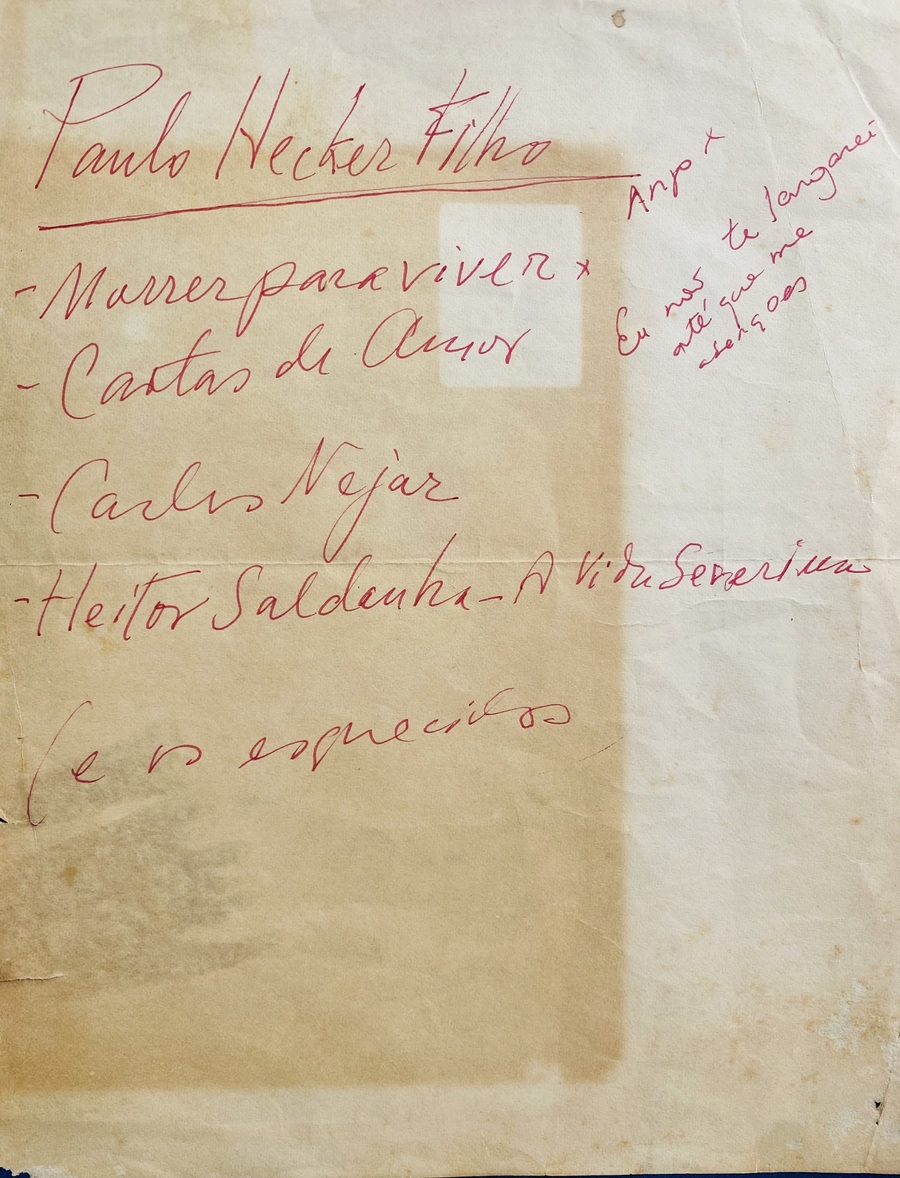 Paulo Hecker Filho
- Morrer para viver x
- Cartas de Amor
- Carlos Nejar
- Heitor Saldanha - A Vida Severina
(e os esquecidos
Anjo x
Eu não te largarei
até que me
abençoes